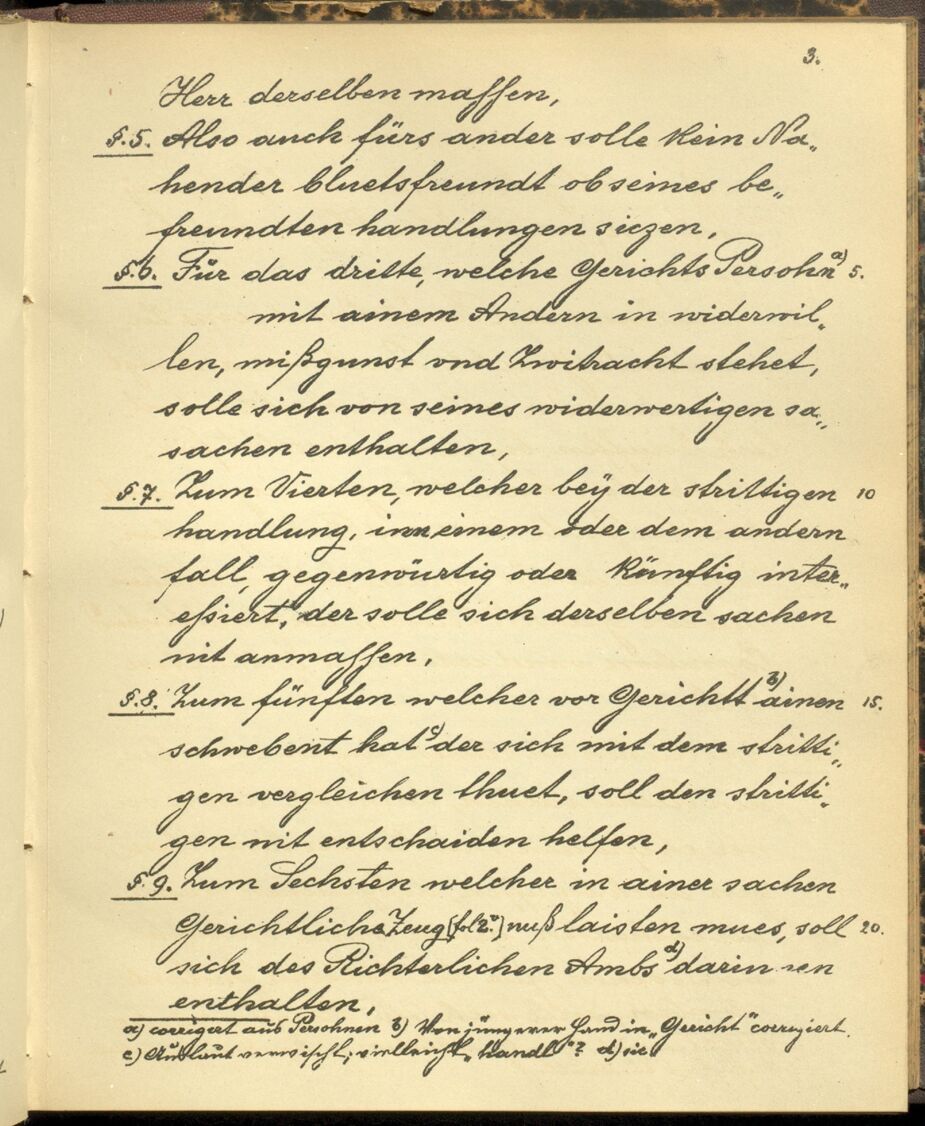 3.
Herr derselben massen,
§.5. Also auch fürs ander solle kein Na„
hender bluetsfreundt ob seines be„
freundten handlungen siczen,
§.6. Für das dritte, welche Gerichts Persohn a) 5.
mit ainem Andern in widerwil„
len, mißgunst vnd Zwitracht stehet,
solle sich von seines widerwertigen sa„
sachen enthalten,
§.7. Zum Vierten, welcher beÿ der strittigen 10
handlung, inn einem oder dem andern
fall, gegenwürtig oder künftig inter„
essiert, der solle sich derselben sachen
nit anmassen,
§.8. Zum fünften welcher vor Gerichtt b) ainen 15.
schwebent hat c) der sich mit dem stritti„
gen vergleichen thuet, soll den stritti„
gen nit entschaiden helfen,
§.9. Zum Sechsten welcher in ainer sachen
Gerichtliche Zeug [fol 2.v] nuß laisten mues, soll 20.
sich des Richterlichen Ambs d) darin
enthalten,
a) corrigirt aus Persohnen b) Von jüngerer Hand in „Gericht" corrigiert.
c) Auslaut verwischt; vielleicht „handl"? d) sic